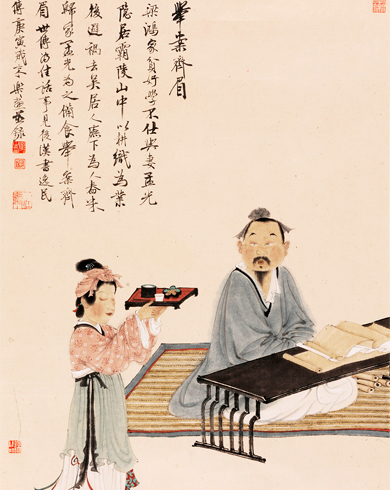 舉案齊眉
梁鴻家貧好學不仕與妻孟光
隱居霸陵山中以耕織為業
後避禍去吳居人廡下為人舂米
歸家孟光為之備食舉案齊
眉世傳為佳話事見後漢書逸民
傳庚寅歲末並錄